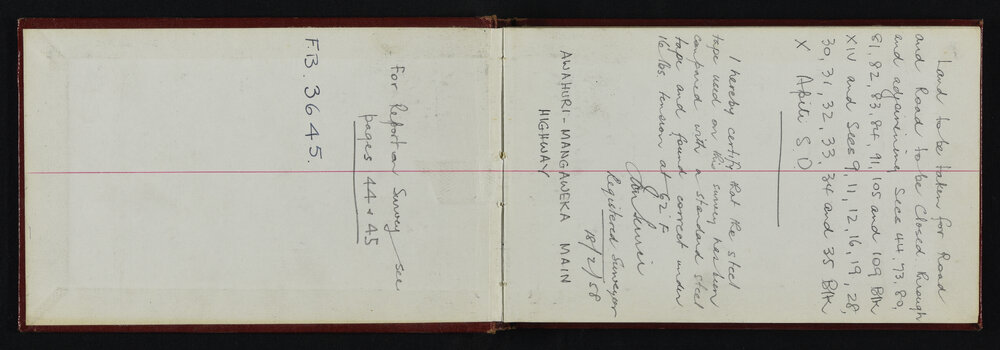 F.B. 3645
For Report on Survey see
pages 44 & 45
Land to be taken for Road
and Road to be Closed through
and adjoining Secs 44, 73, 80,
81, 82, 83, 84, 91, 105 and 109 Blk
XIV and Secs 9, 11, 12, 16, 19, 28,
30, 31, 32, 33, 34 and 35 Blk
X Apiti S D
I hereby certify that the steel
tape used on this survey has been
compared with a standard steel
tape and found correct under
16 lbs tension at 62° F
Registered Surveyor
18/2/58
AWAHURI - MANGAWEKA MAIN
HIGHWAY